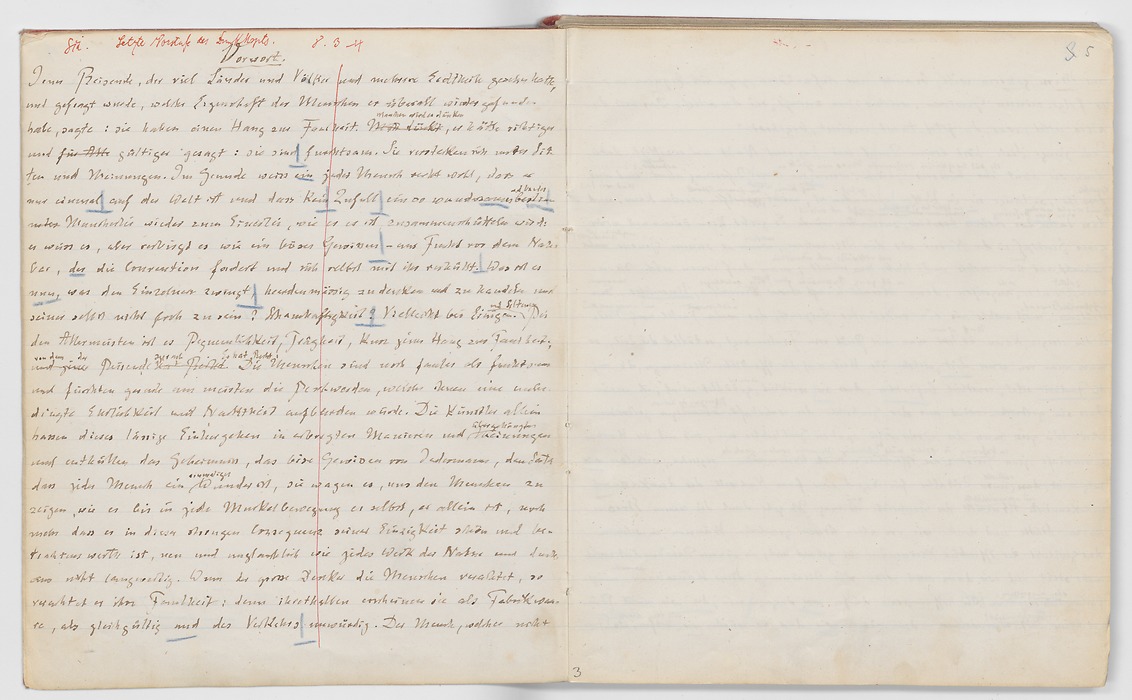 Letzte Vorstufe des Druckkopts.
Vorwort.
Jener Reisende, der viel Länder und Völker und mehrere Erdtheile gesehn hatte,
und gefragt wurde, welche Eigenschaft der Menschen er überall wiedergefunden
habe, sagte: sie haben einen Hang zur Faulheit. Manchen wird es dünken, er hätte richtiger
und gültiger gesagt: sie sind furchtsam. Sie verstecken sich unter Sit-
ten und Meinungen. Im Grunde weiss ein jeder Mensch recht wohl, dass er
nur einmal auf der Welt ist und dass kein Zufall ein so wunderbares
Mancherlei wieder zum Einerlei, wie er es ist zusammenschütteln wird:
er weiss es, aber verbirgt es wie ein böses Gewissen – aus Furcht vor dem Nach-
bar, der die Convention fordert und sich selbst mit ihr verhüllt. Was ist es
nun, was den Einzelnen zwingt, heerdenmässig zu denken und zu handeln und
seiner selbst nicht froh zu sein? Schamhaftigkeit? Vielleicht bei Einigen. Bei
den Allermeisten ist es Bequemlichkeit, Trägheit, kurz jener Hang zur Faulheit,
von dem der Reisende sprach. Er hat Recht: Die Menschen sind noch fauler als furchtsam
und fürchten gerade am meisten die Beschwerden, welche ihnen eine unbe-
dingte Ehrlichkeit und Nacktheit aufbürden würde. Die Künstler allein
hassen dieses lässige Einhergehen in erborgten Manieren und übergehängten Meinungen
und enthüllen das Geheimniss, das böse Gewissen von Jedermann, den Satz
dass jeder Mensch ein einmaliges Wunder ist, sie wagen es, uns den Menschen zu
zeigen, wie er bis in jede Muskelbewegung er selbst, er allein ist, noch
mehr dass er in dieser strengen Consequenz seiner Einzigkeit schön und be-
trachtenswerth ist, neu und unglaublich wie jedes Werk der Natur und durch-
aus nicht langweilig. Wenn der grosse Denker die Menschen verachtet, so
verachtet er ihre Faulheit: denn ihrethalben erscheinen sie als Fabrikwaa-
re, als gleichgültig und des Verkehrs unwürdig. Der Mensch, welcher nicht
5
3